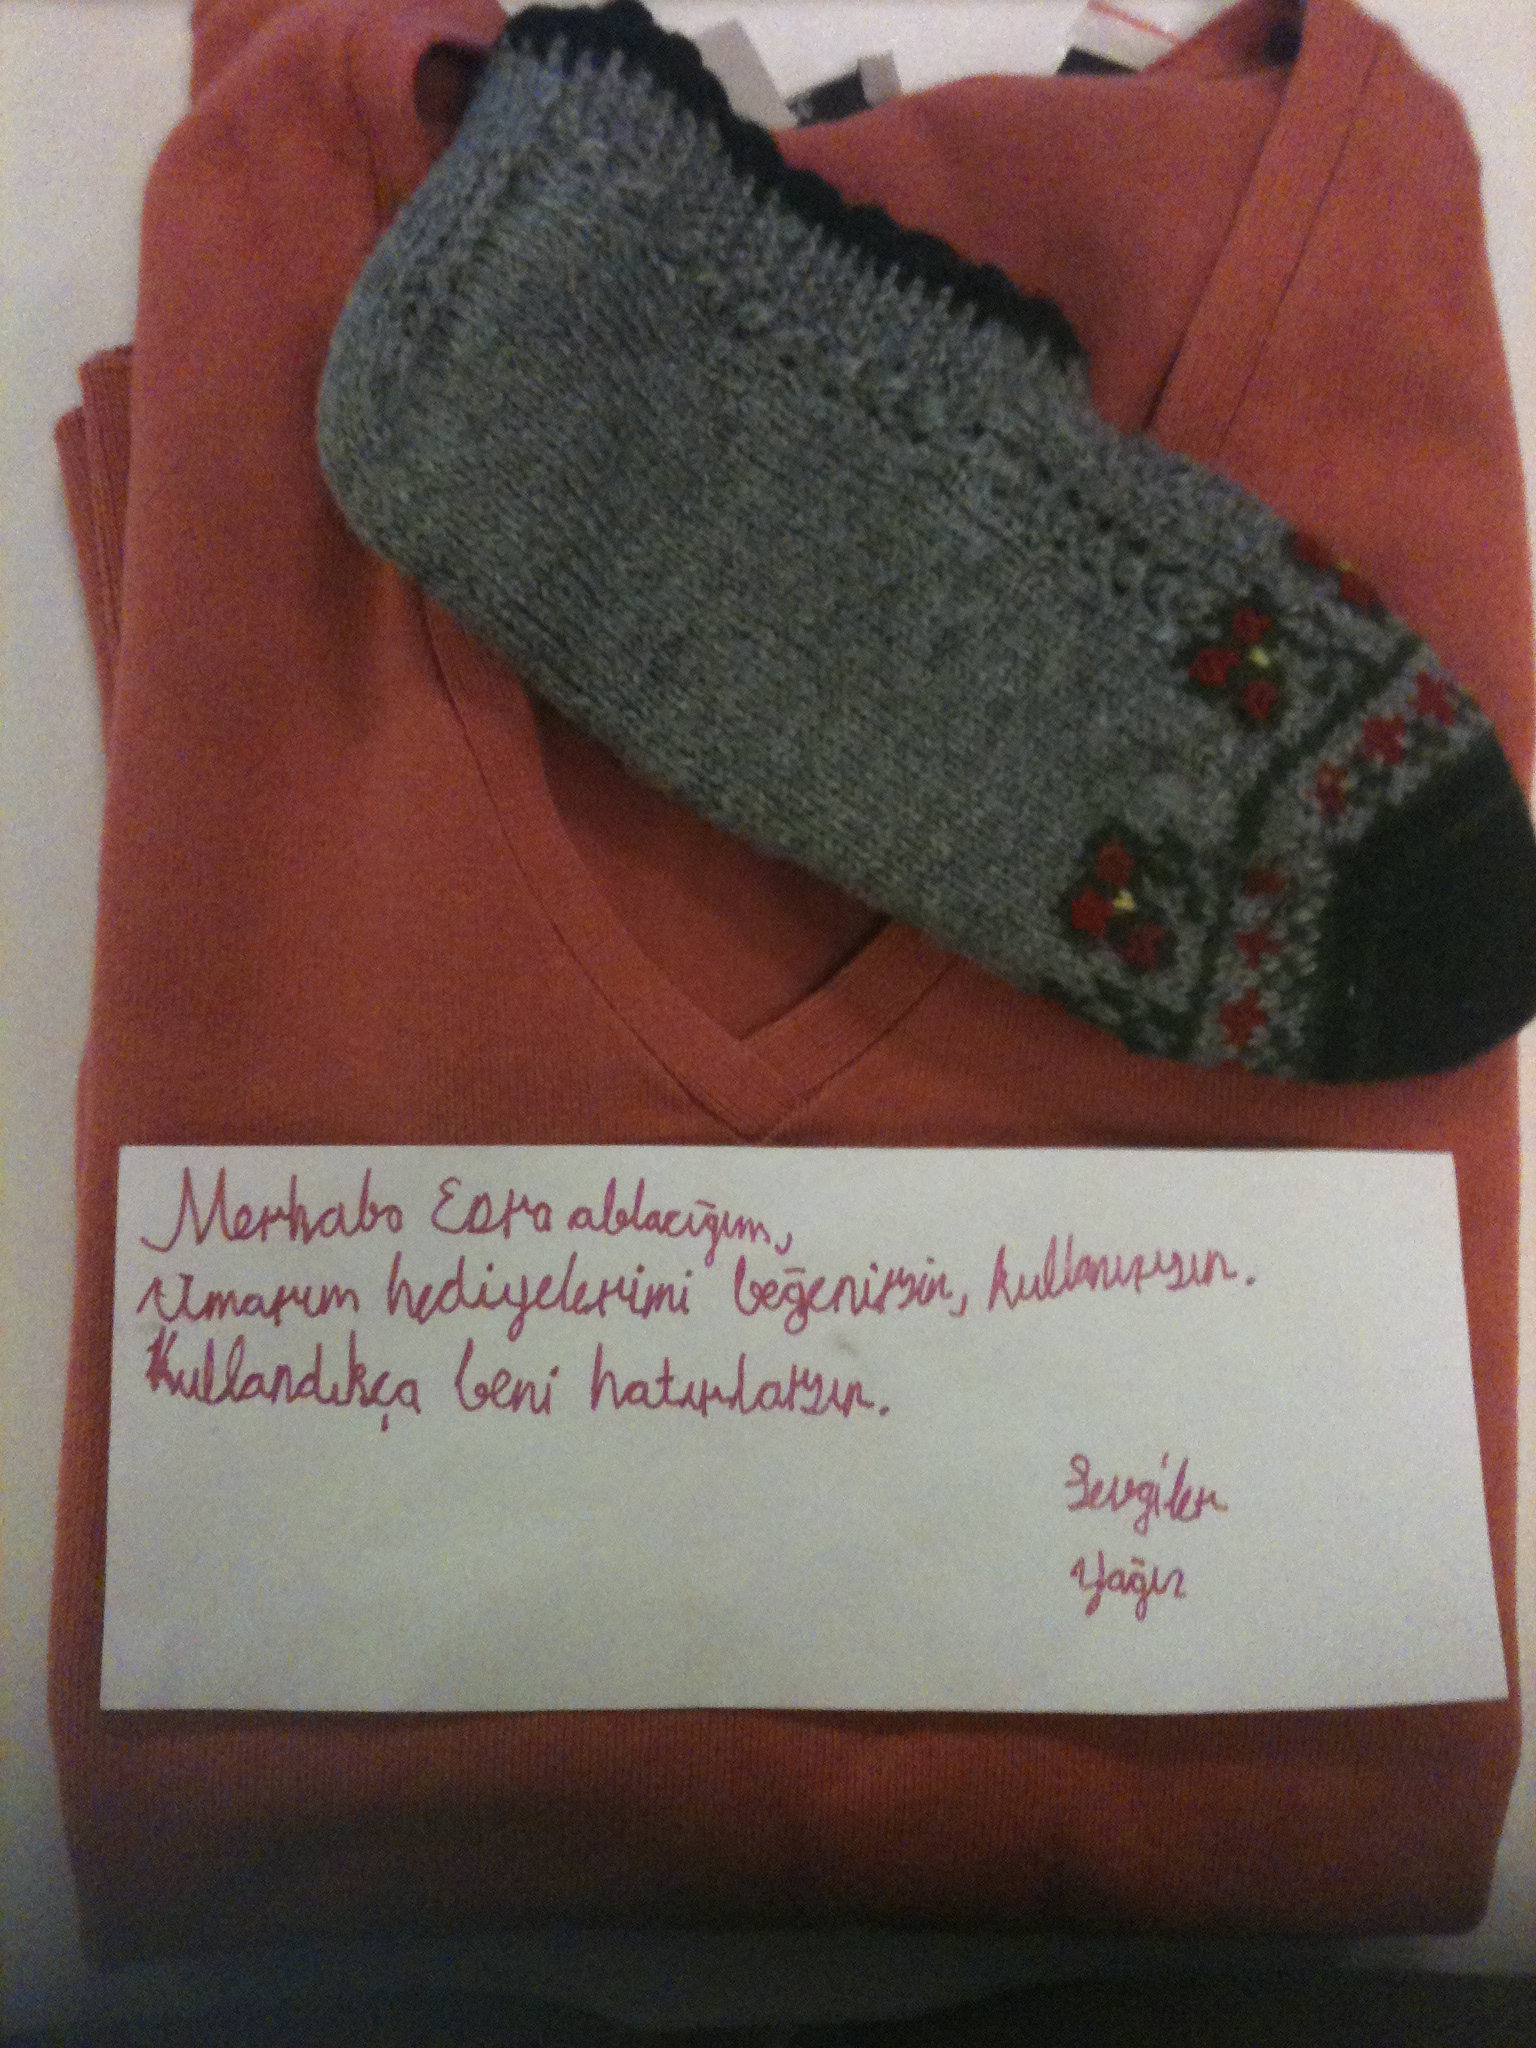 Merhaba Esra ablacığım,
Umarım hediyelerimi beğenirsin, kullanırsın.
Kullandıkça beni hatırlarsın.
Sevgiler
Yağız